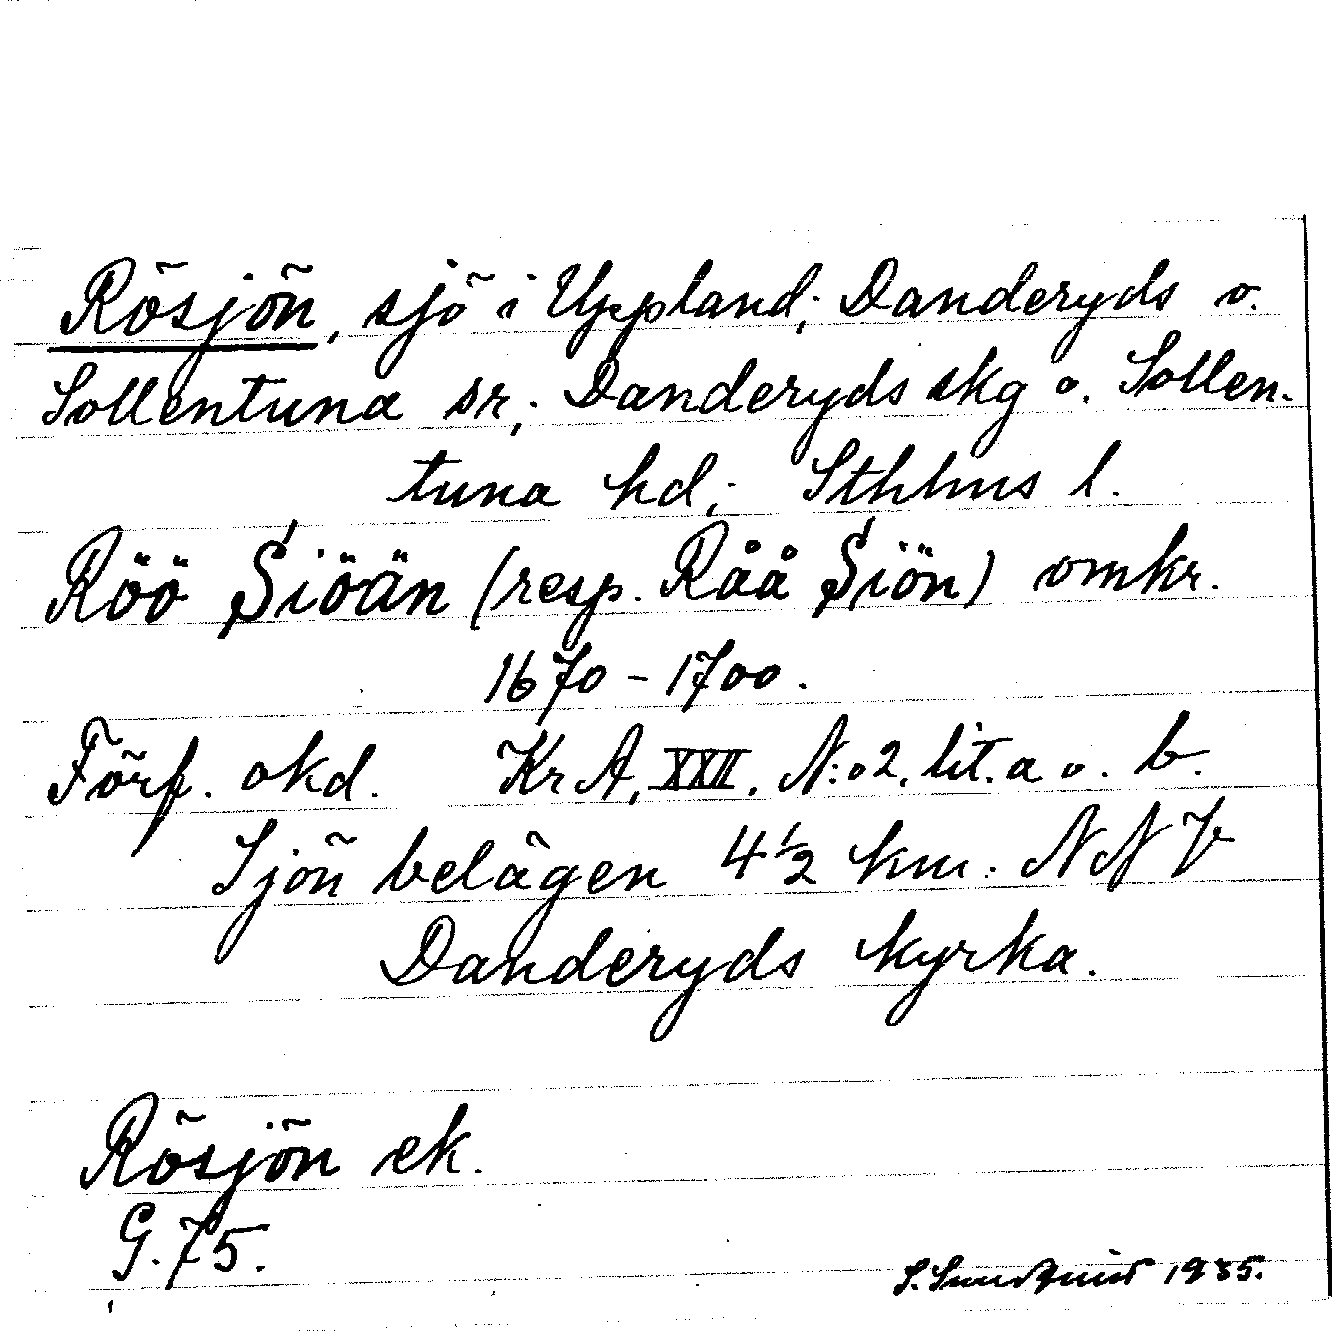 Rösjön, sjö i Uppland; Danderyds o.
Sollentuna sr; Danderyds skg o. Sollen-
tuna hd; Sthlms l.
Röö Siöän (resp. Råå Siön) omkr.
1670-1700.
Förf. okd. KrA, XXII. N:o 2. lit. a o. b.
Sjön belägen 4½ km. NNV
Danderyds kyrka.
Rösjön ek.
G. 75.
S. 1935.